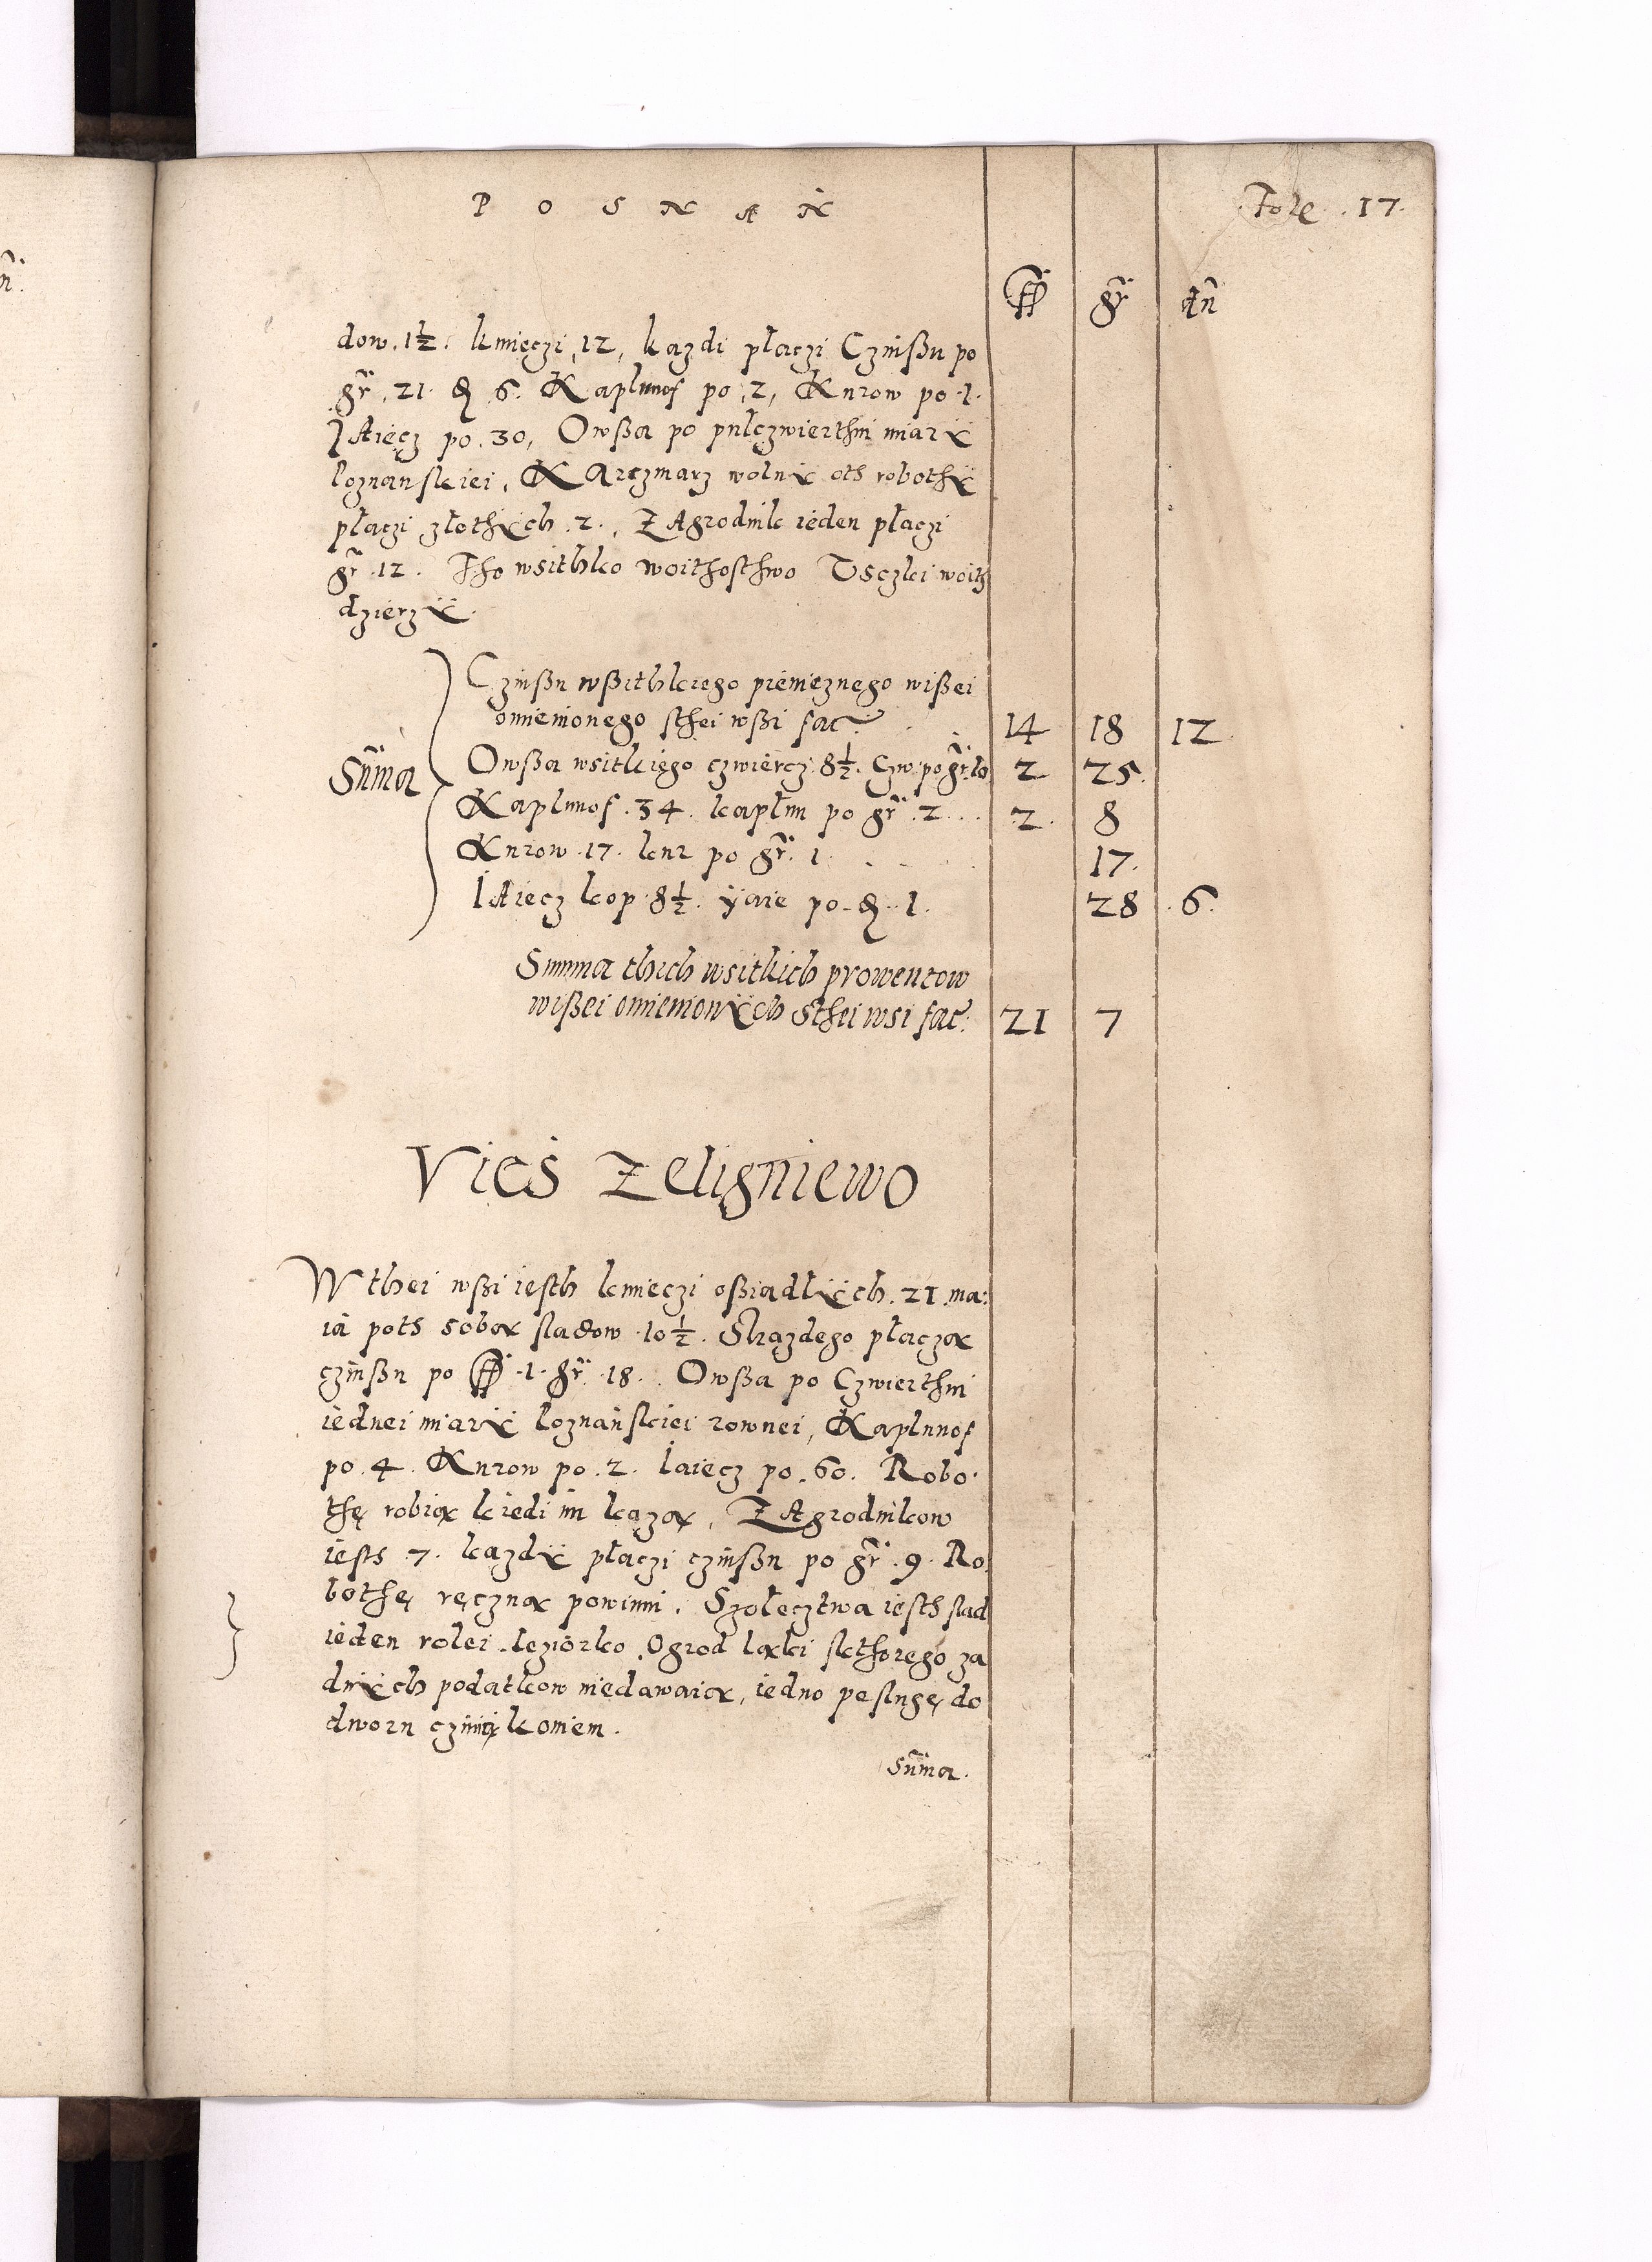 P O S N A N
Fole .17.
fl gr dn
dow .1½. kmieczi .12, kazdi płaczi Czinßu po
gr .21. δ 6. Kapłunof po .2, Kurow po .1.
JAięcz po .30, Owßa po pułczwierthni miarÿ
łoznanskiei, KArczmarz wolnÿ oth robothÿ
płaczi złothÿch .2., ZAgrodnik ieden płaczi
gr .12. Tho wsithko woithosthwo Usczki woith
dzierzÿ.
Czinßu wßithkiego pienięznego wißei
omienionego sthei wßi fac. 14 18 12
Suma
Owßa wsitkiego czwiercz 8½. Czw. po gr. 10 2 25.
Kapłunof .34. kapłun po gr .2... 2. 8
Kurow .17. kur po gr. 1. 17.
JAiecz kop 8½. ÿaie po δ .1. 28 .6.
Summa thich wsitkich prowentow
wißei omienionÿch sthei wsi fac. 21 7
Vieś Zeligniewo
W thei wßi iesth kmieczi oßiadłÿch .21. ma:
ią poth sobą sladow .10½. Skazdego płaczą
czinßu po fl .1. gr .18. Owßa po Czwierthni
iednei miarÿ łoznańskiei rownei, Kapłunof
po .4. Kurow po .2. Iaiecz po .60. Robo
thę robią kiedi im kazą, ZAgrodnikow
iesth .7. kazdÿ płaczi czinßu po gr .9. Ro
bothę ręczną powinni. Szołecztwa iesth slad
ieden rolei. Ieziorko. Ogrod łąki sktorego za
dnÿch podatkow niedawaią, iedno posługę do
dworu czinią koniem.
Suma.